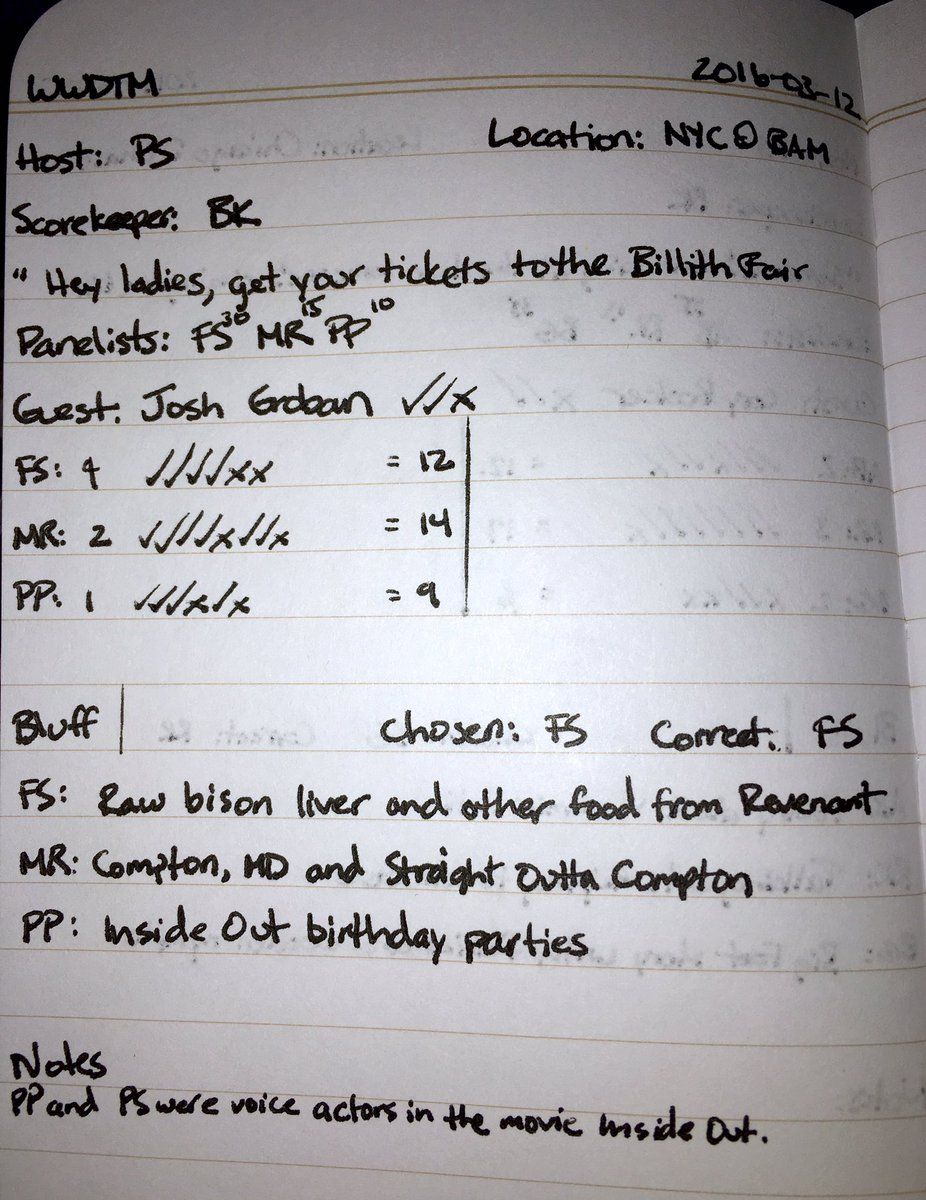 WWDTM 2016-03-12
Host: PS Location: NYC @ BAM
Scorekeeper: BK
"Hey ladies, get your tickets to the Billith Fair
Panelists: FS³⁰ MR¹⁵ PP¹⁰
Guest: Josh Groban ✓✓x
FS: 4 ✓✓✓✓xx = 12
MR: 2 ✓✓✓✓x✓✓x = 14
PP: 1 ✓✓✓x✓x = 9
Bluff Chosen: FS Correct: FS
FS: Raw bison liver and other food from Revenant
MR: Compton, MD and Straight Outta Compton
PP: Inside Out birthday parties
Notes
PP and PS were voice actors in the movie Inside Out.